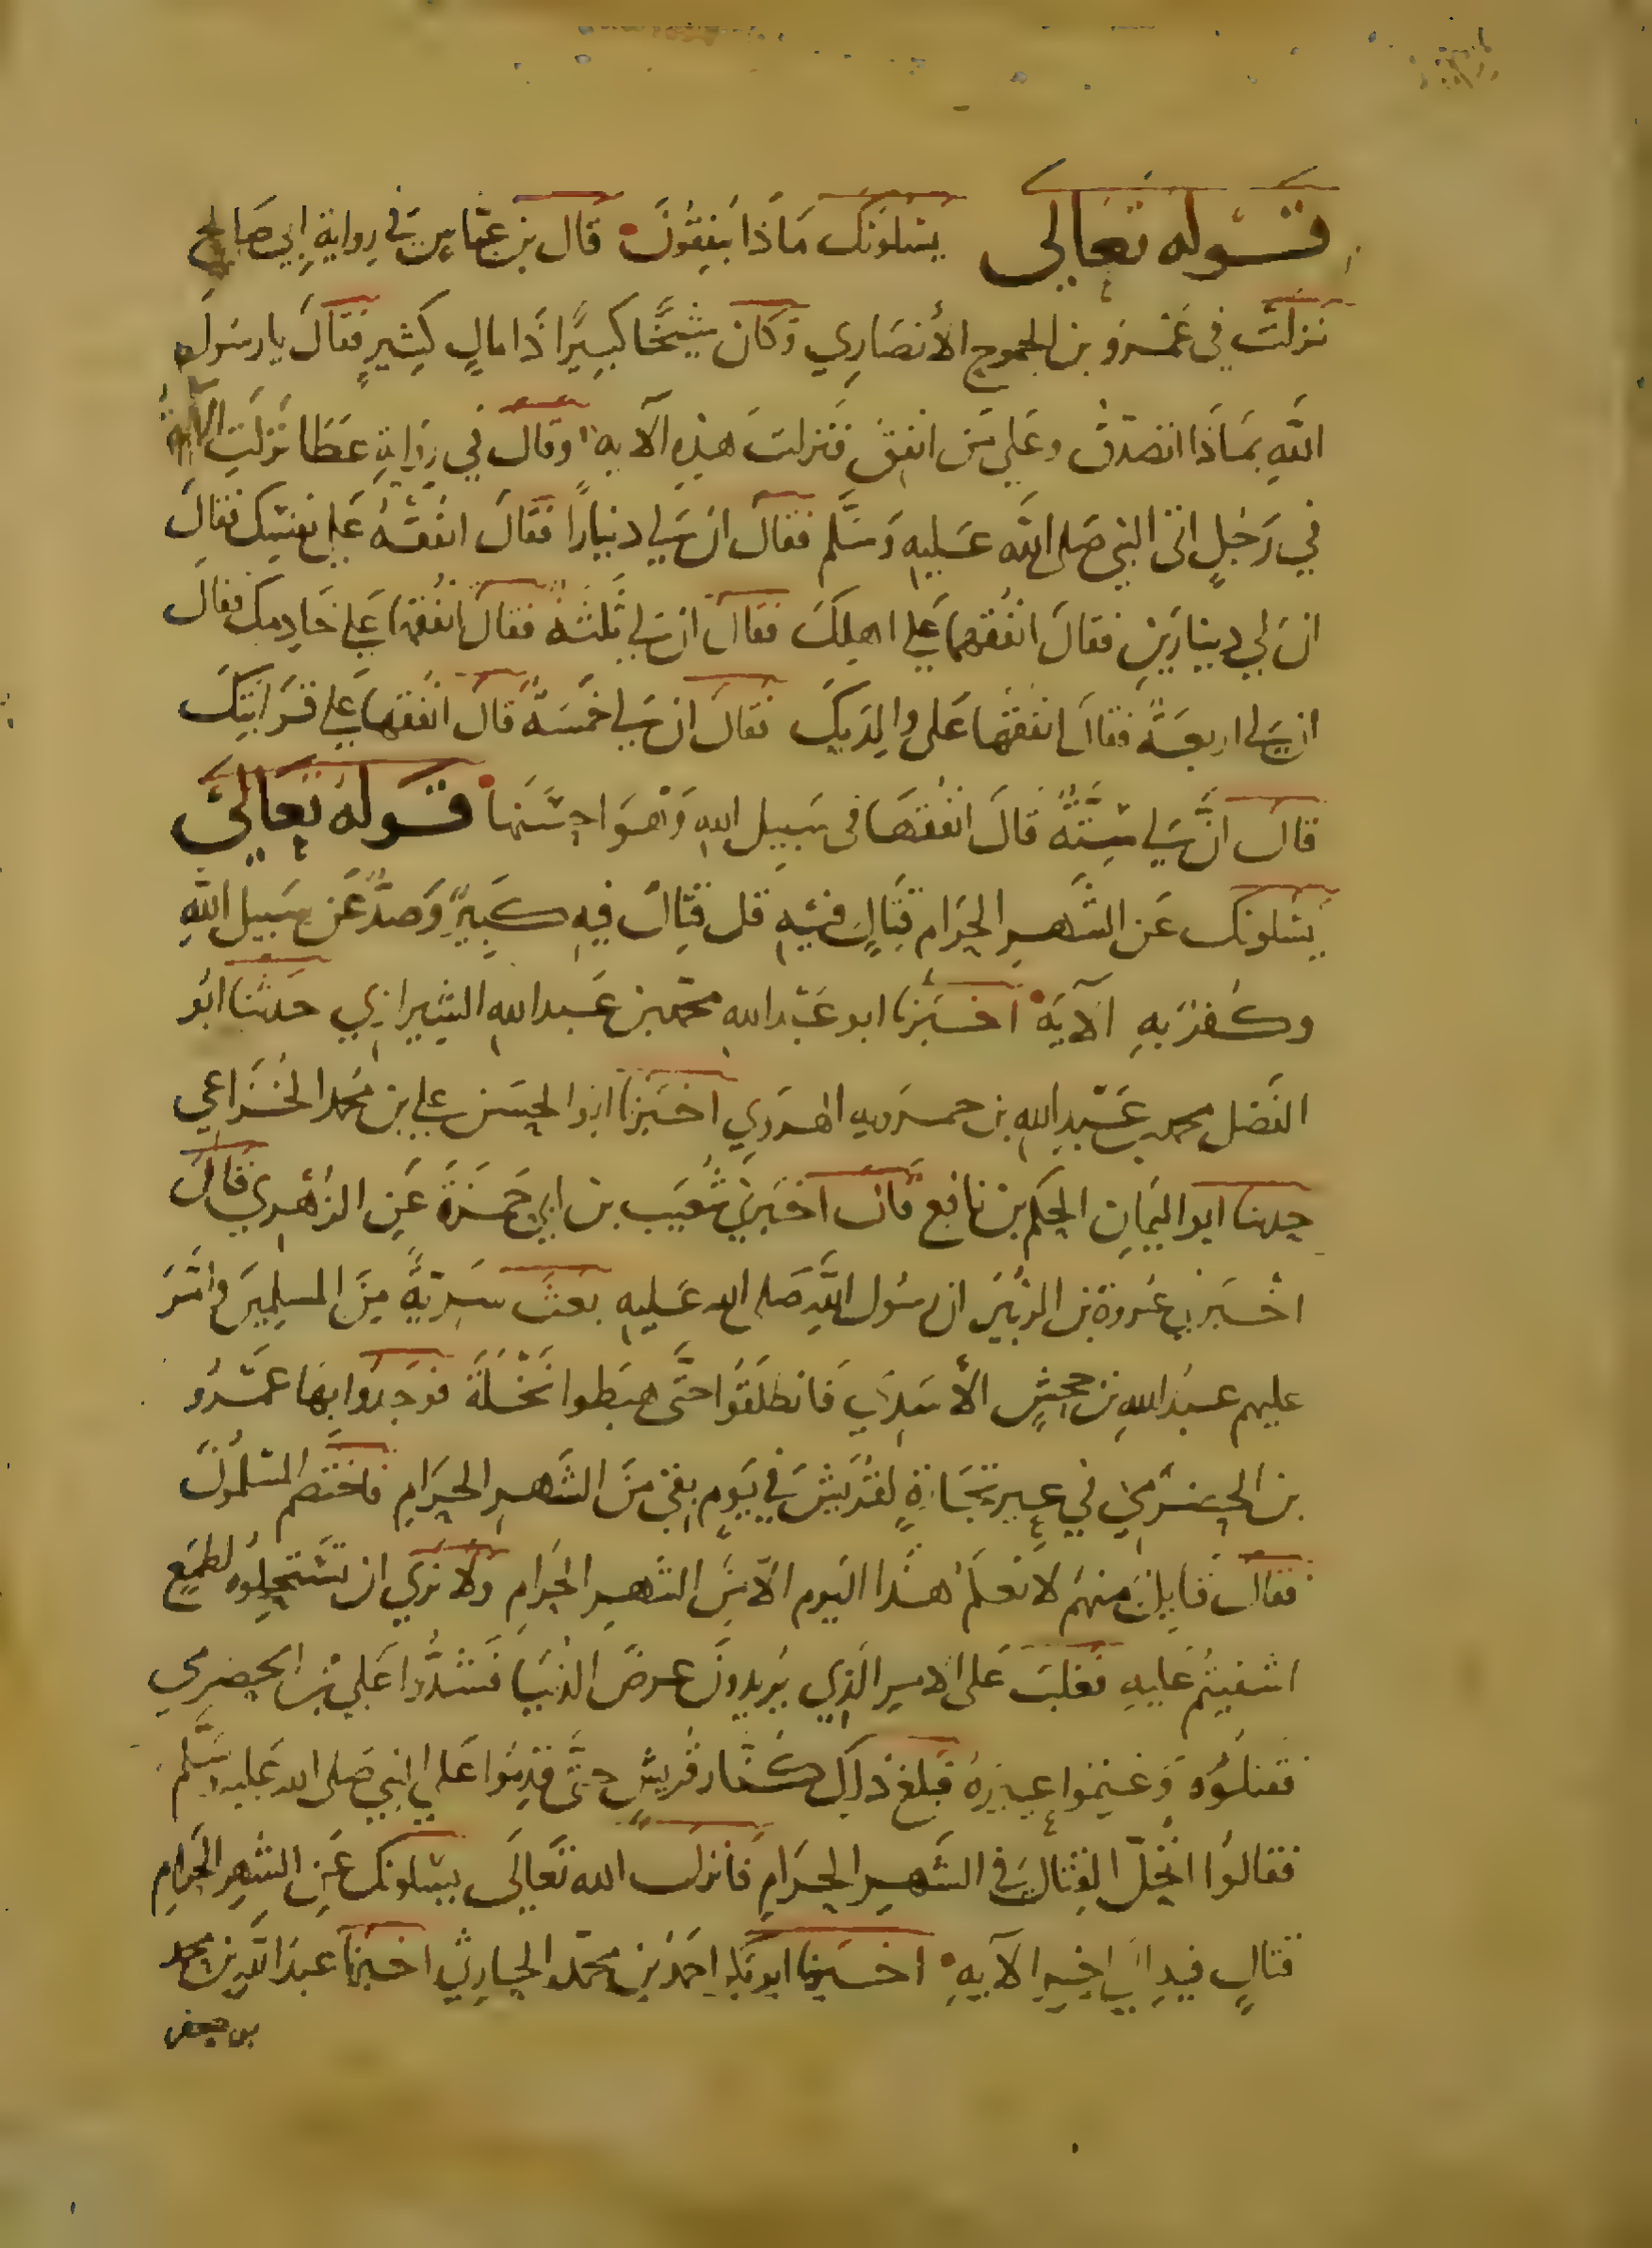 قوله تعالى يسلونك ماذا ينفقون قال بن عباس في رواية ابي صالح
نزلت في عمرو بن الجموح الأنصاري وكان شيخًا كبيرًا ذا مالٍ كثيرٍ فقال يا رسول
الله بماذا اتصدق وعلى من انفق فنزلت هذه الآية وقال في رواية عطا نزلت الآية
في رجلٍ اتى النبي صلى الله عليه وسلم فقال ان لي دينارًا فقال انفقه على نفسك فقال
ان لي دينارين فقال انفقهما على اهلك فقال ان لي ثلثة فقال انفقها على خادمك فقال
ان لي اربعة فقال انفقها على والديك فقال ان لي خمسة قال انفقها على قرابتك
قال انّ لي ستة قال انفقها في سبيل الله وهو احسنها قوله تعالى
يسلونك عن الشهر الحرام قتالٍ فيه قل قتال فيه كبير وصدّ عن سبيل الله
وكفر به الآية اخبرنا ابو عبد الله محمد بن عبد الله الشيرازي حدثنا ابو
الفضل محمد بن عبد الله بن خمرويه الهروي اخبرنا ابو الحسن علي بن محمد الخزاعي
حدثنا ابو اليمان الحكم بن نافع قال اخبرني شعيب بن ابي حمزة عن الزهري قال
اخبرني عروة بن الزبير ان رسول الله صلى الله عليه بعث سريةً من المسلمين وامر
عليهم عبد الله بن جحشٍ الأسدي فانطلقوا حتّى هبطوا نخلة فوجدوا بها عمرو
بن الحضرمي في عير تجارةٍ لقريش في يوم بقي من الشهر الحرام فاختصم المسلمون
فقال قايل منهم لا نعلم هذا اليوم الّا من الشهر الحرام ولا نرى ان تستحلوه لطمع
اشفيتم عليه فغلب على الامر الذي يريدون عرض الدنيا فشدّوا على بن الحضرمي
فقتلوه وغنموا عيره فبلغ ذلك كفار قريش حتّى قدموا على النبي صلى الله عليه وسلم
فقالوا اتحلّ القتال في الشهر الحرام فانزل الله تعالى يسلونك عن الشهر الحرام
قتالٍ فيه الى اخر الآية اخبرنا ابو بكر احمد بن محمد الحارثي اخبرنا عبد الله بن محمد
بن جعفر